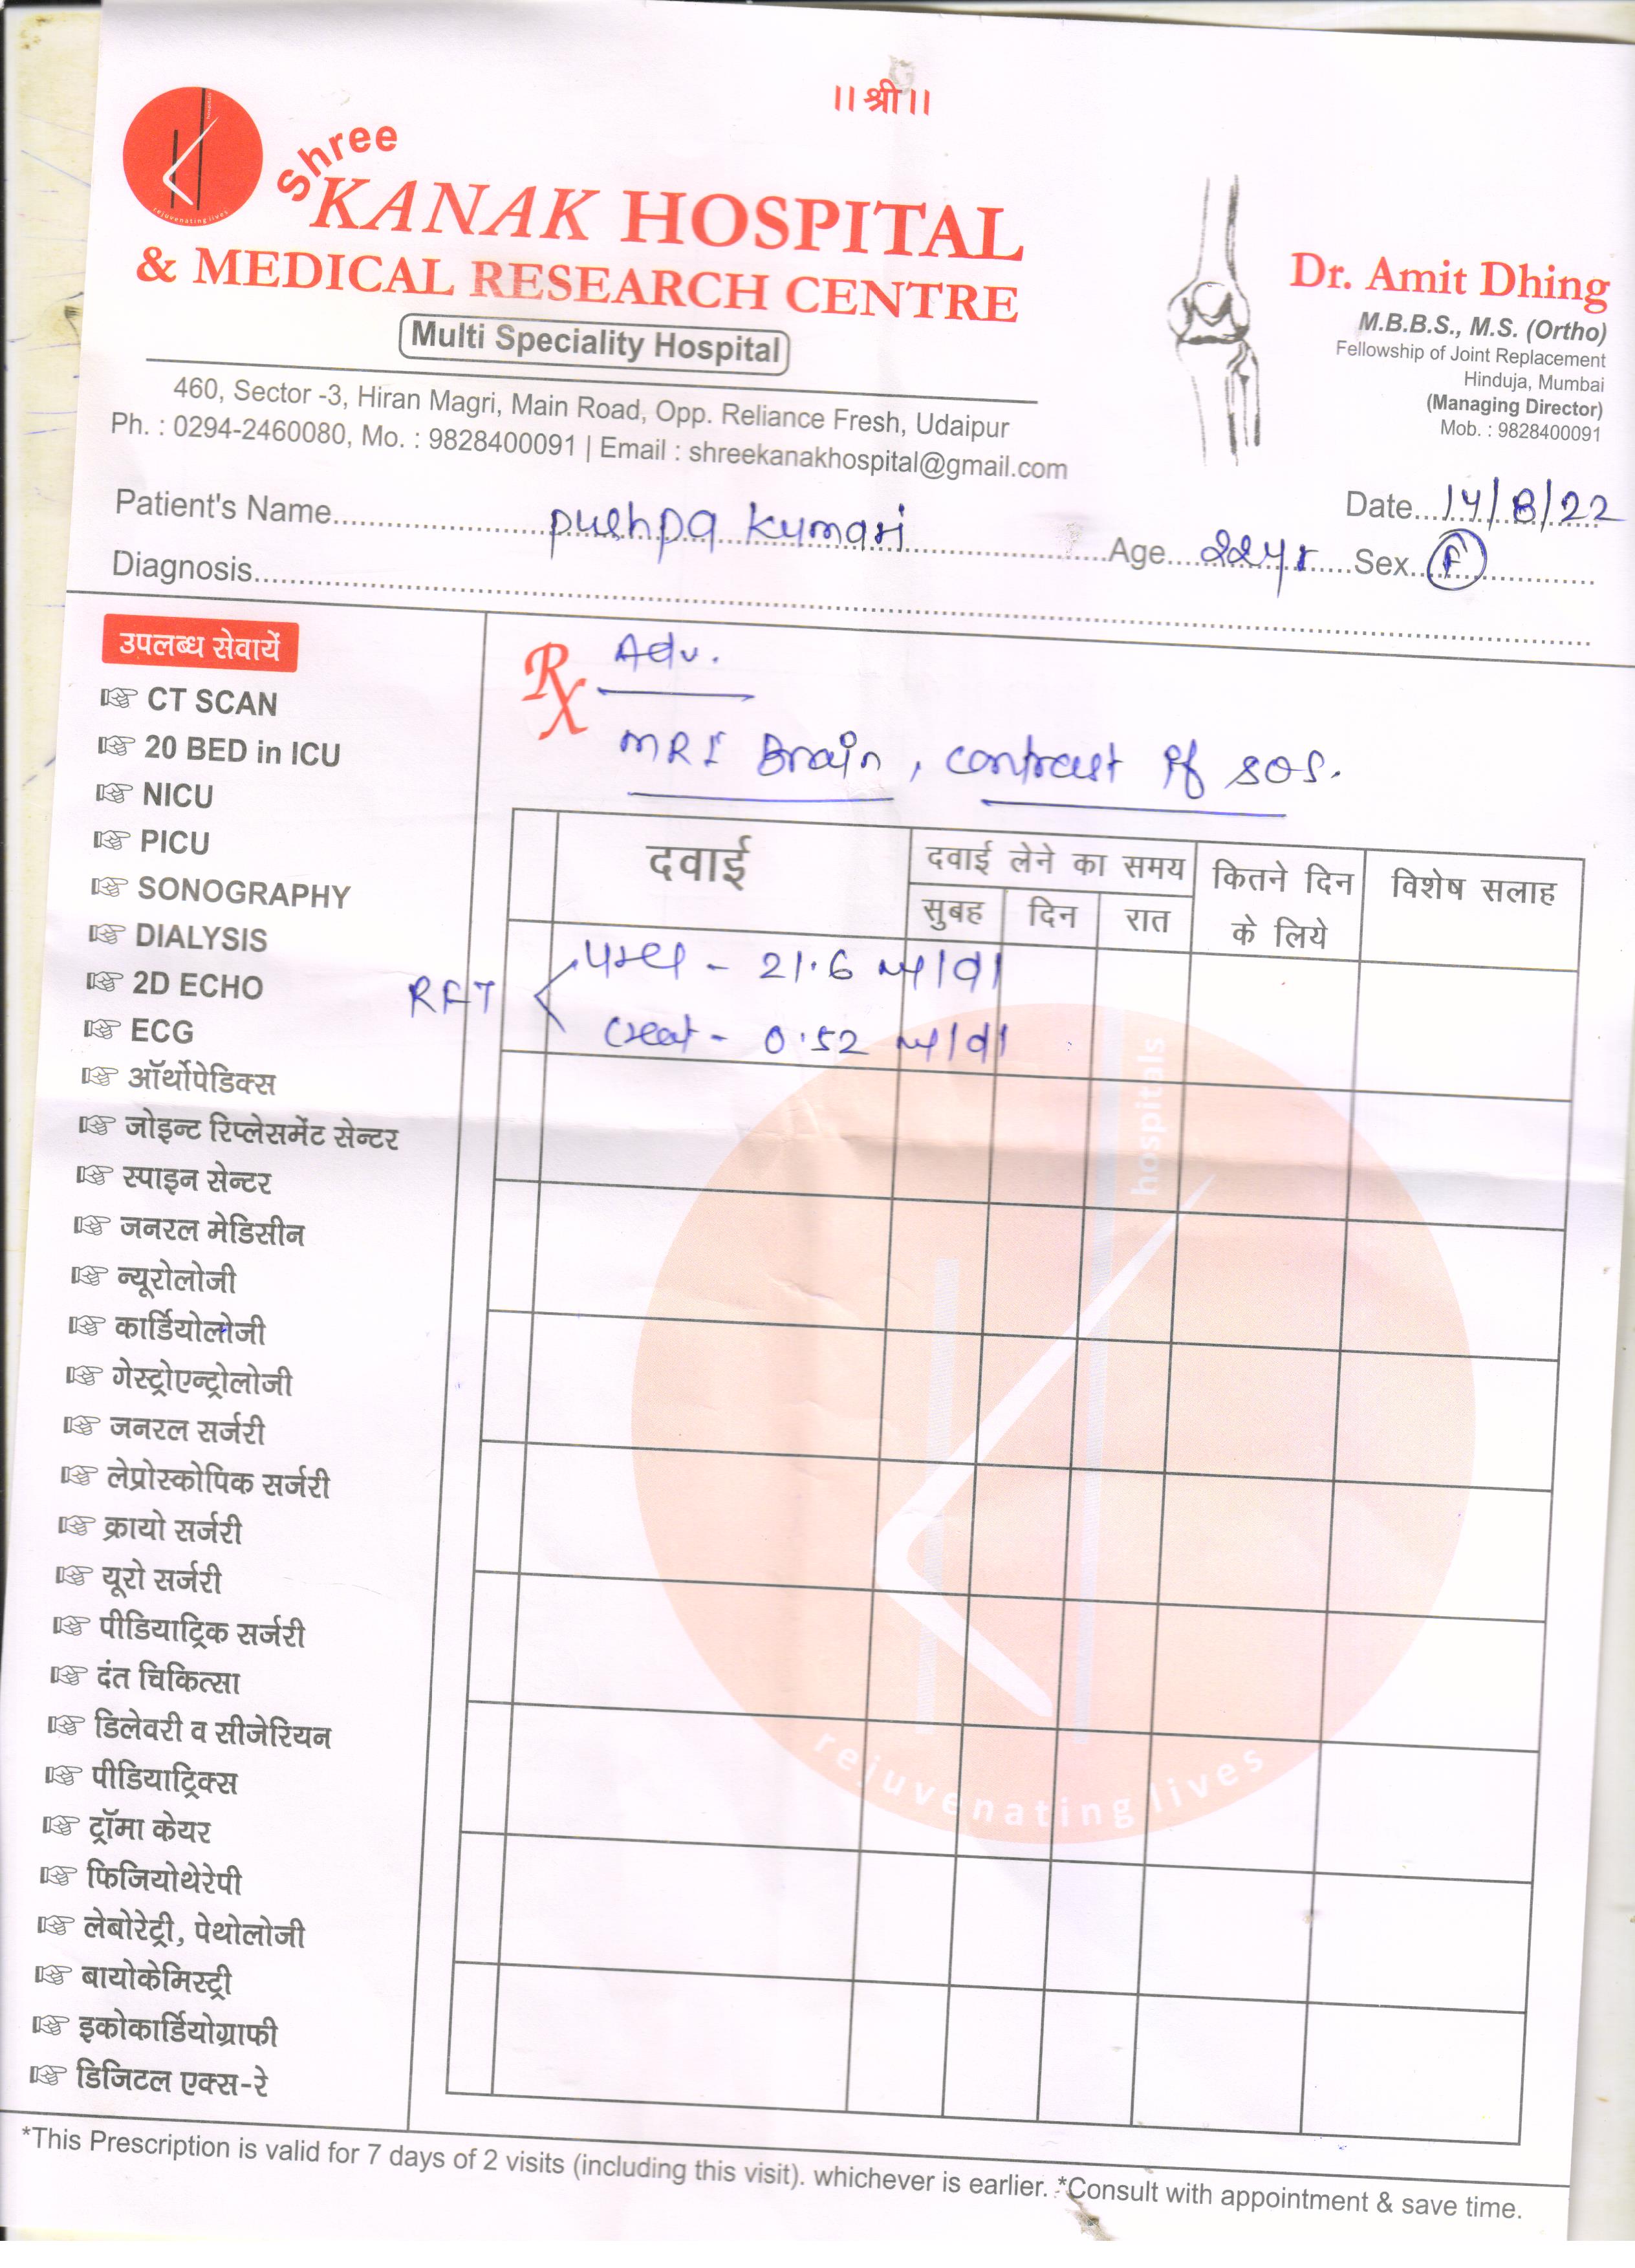 ।। श्री ।।
Shree
KANAK HOSPITAL
& MEDICAL RESEARCH CENTRE
Multi Speciality Hospital
460, Sector -3, Hiran Magri, Main Road, Opp. Reliance Fresh, Udaipur
Ph. : 0294-2460080, Mo. : 9828400091 | Email : shreekanakhospital@gmail.com
rejuvenating lives
Dr. Amit Dhing
M.B.B.S., M.S. (Ortho)
Fellowship of Joint Replacement
Hinduja, Mumbai
(Managing Director)
Mob. : 9828400091
Date 14/8/22
Patient's Name pushpa kumari Age 22yr Sex F
Diagnosis
उपलब्ध सेवायें
CT SCAN
20 BED in ICU
NICU
PICU
SONOGRAPHY
DIALYSIS
2D ECHO
ECG
ऑर्थोपेडिक्स
जोइन्ट रिप्लेसमेंट सेन्टर
स्पाइन सेन्टर
जनरल मेडिसीन
न्यूरोलोजी
कार्डियोलोजी
गेस्ट्रोएन्ट्रोलोजी
जनरल सर्जरी
लेप्रोस्कोपिक सर्जरी
क्रायो सर्जरी
यूरो सर्जरी
पीडियाट्रिक सर्जरी
दंत चिकित्सा
डिलेवरी व सीजेरियन
पीडियाट्रिक्स
ट्रॉमा केयर
फिजियोथेरेपी
लेबोरेट्री, पेथोलोजी
बायोकेमिस्ट्री
इकोकार्डियोग्राफी
डिजिटल एक्स-रे
Rx Adv.
MRI Brain, contrast if SOS.
दवाई दवाई लेने का समय कितने दिन के लिये विशेष सलाह
सुबह दिन रात
RFT
- 21.6
Creat - 0.52
hospitals
rejuvenating lives
*This Prescription is valid for 7 days of 2 visits (including this visit). whichever is earlier. *Consult with appointment & save time.